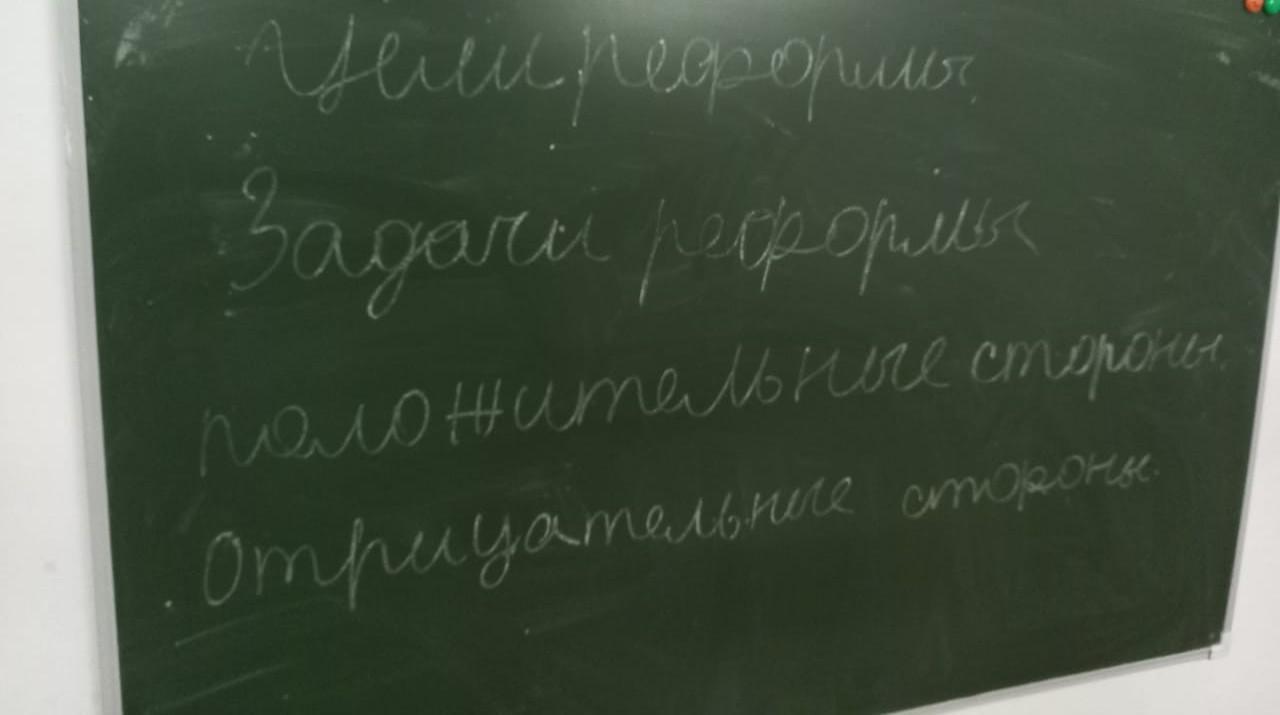 Цели реформы
Задачи реформы
положительные стороны.
Отрицательные стороны.